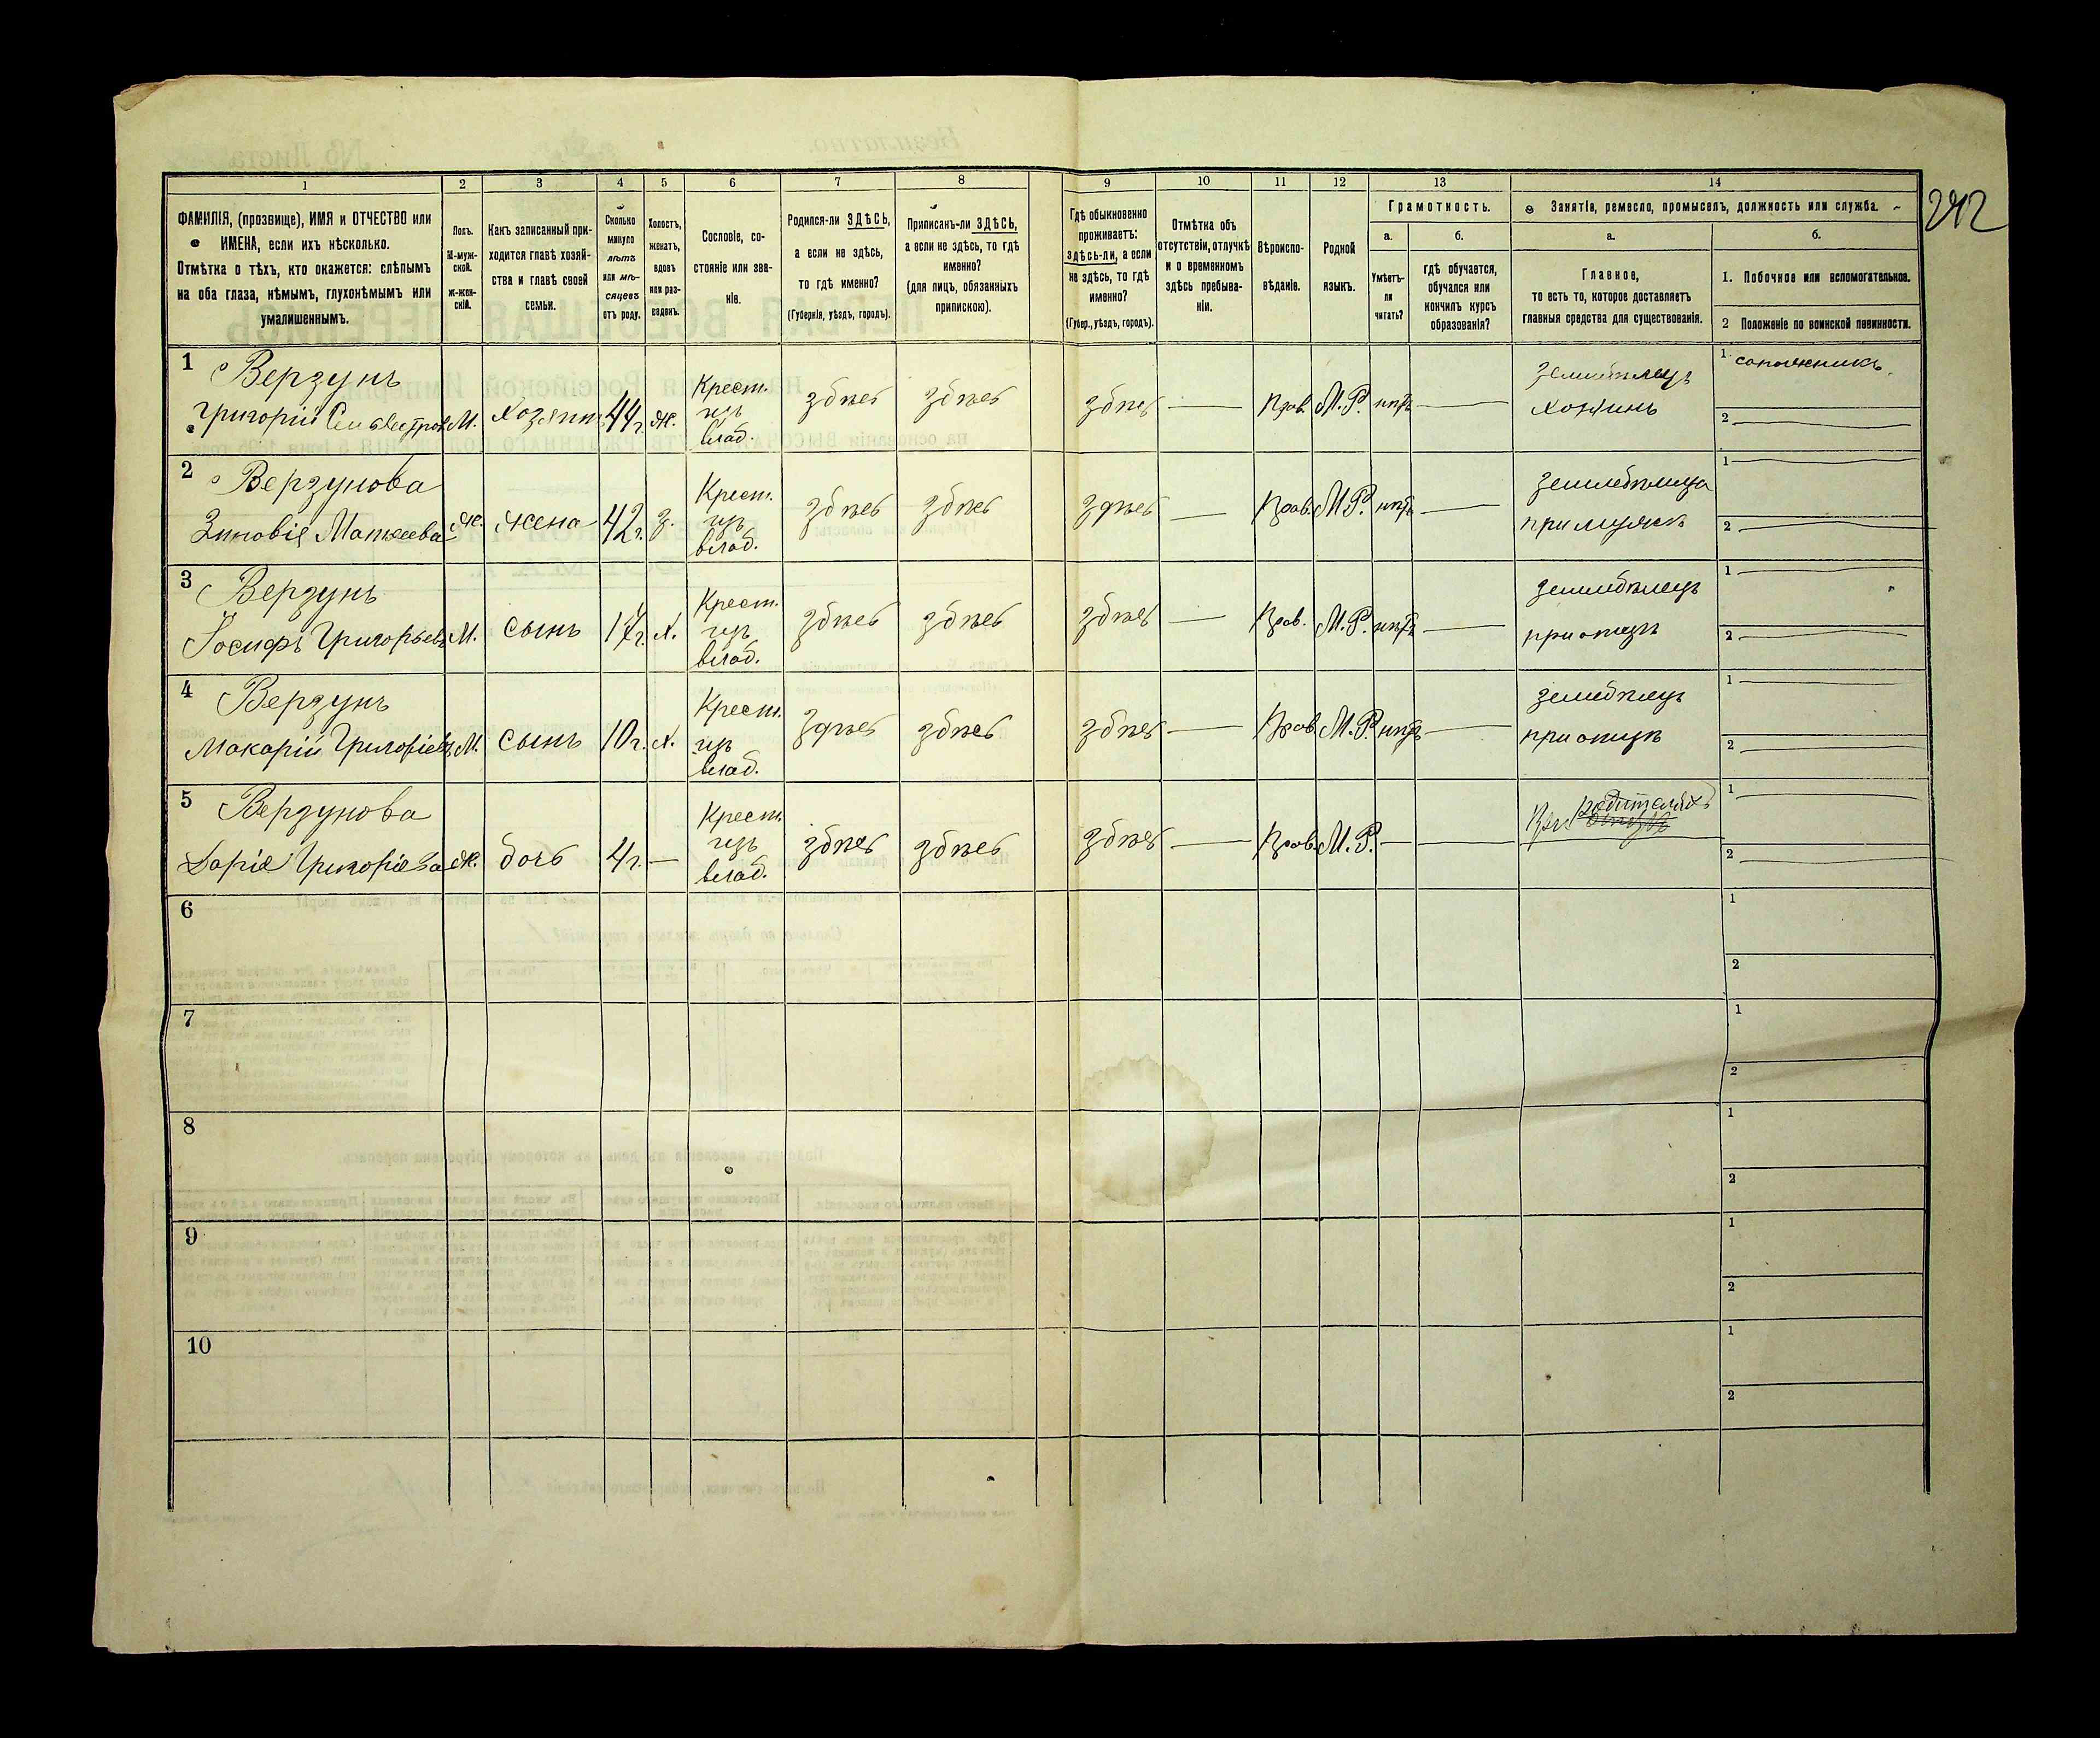 242
1 2 3 4 5 6 7 8 9 10 11 12 13 14
ФАМИЛІЯ, (прозвище), ИМЯ и ОТЧЕСТВО или
ИМЕНА, если ихъ нѣсколько.
Отмѣтка о тѣхъ, кто окажется: слѣпымъ
на оба глаза, нѣмымъ, глухонѣмымъ или
умалишеннымъ.
Полъ.
М-муж-
ской.
Ж-жен-
скій.
Какъ записанный при-
ходится главѣ хозяй-
ства и главѣ своей
семьи.
Сколько
минуло
лѣтъ
или мѣ-
сяцевъ
отъ роду.
Холостъ,
женатъ,
вдовъ
или раз-
веденъ.
Сословіе, со-
стояніе или зва-
ніе.
Родился-ли ЗДѢСЬ,
а если не здѣсь,
то гдѣ именно?
(Губернія, уѣздъ, городъ).
Приписанъ-ли ЗДѢСЬ,
а если не здѣсь, то гдѣ
именно?
(для лицъ, обязанныхъ
припискою).
Гдѣ обыкновенно
проживаетъ:
здѣсь-ли, а если
не здѣсь, то гдѣ
именно?
(Губер., уѣздъ, городъ).
Отмѣтка объ
отсутствіи, отлучкѣ
и о временномъ
здѣсь пребыва-
ніи.
Вѣроиспо-
вѣданіе.
Родной
языкъ.
Грамотность.
а.
Умѣетъ-
ли
читать?
б.
гдѣ обучается,
обучался или
кончилъ курсъ
образованія?
Занятія, ремесло, промыселъ, должность или служба.
а.
Главное,
то есть то, которое доставляетъ
главныя средства для существованія.
б.
1. Побочное или вспомогательное.
2 Положеніе по воинской повинности.
1 Верзунъ
Григорій Сильвестров М. Хозяинъ 44 г. Ж. Крест. изъ влад. здѣсь здѣсь здѣсь — Прав. М.Р. нѣтъ —
земледѣлецъ
хозяинъ
1 сапожникъ
2 —
2 Верзунова
Зиновія Матвеева Ж. жена 42 г. З. Крест. изъ влад. здѣсь здѣсь здѣсь — Прав. М.Р. нѣтъ —
земледѣлица
при мужѣ
1 —
2 —
3 Верзунъ
Іосифъ Григорьевъ М. сынъ 17 г. Х. Крест. изъ влад. здѣсь здѣсь здѣсь — Прав. М.Р. нѣтъ —
земледѣлецъ
при отцѣ
1 —
2 —
4 Верзунъ
Макарій Григоріевъ М. сынъ 10 г. Х. Крест. изъ влад. здѣсь здѣсь здѣсь — Прав. М.Р. нѣтъ —
земледѣлецъ
при отцѣ
1 —
2 —
5 Верзунова
Дарія Григоріева Ж. дочь 4 г. — Крест. изъ влад. здѣсь здѣсь здѣсь — Прав. М.Р. — —
При родителяхъ
1 —
2 —
6 1
2
7 1
2
8 1
2
9 1
2
10 1
2